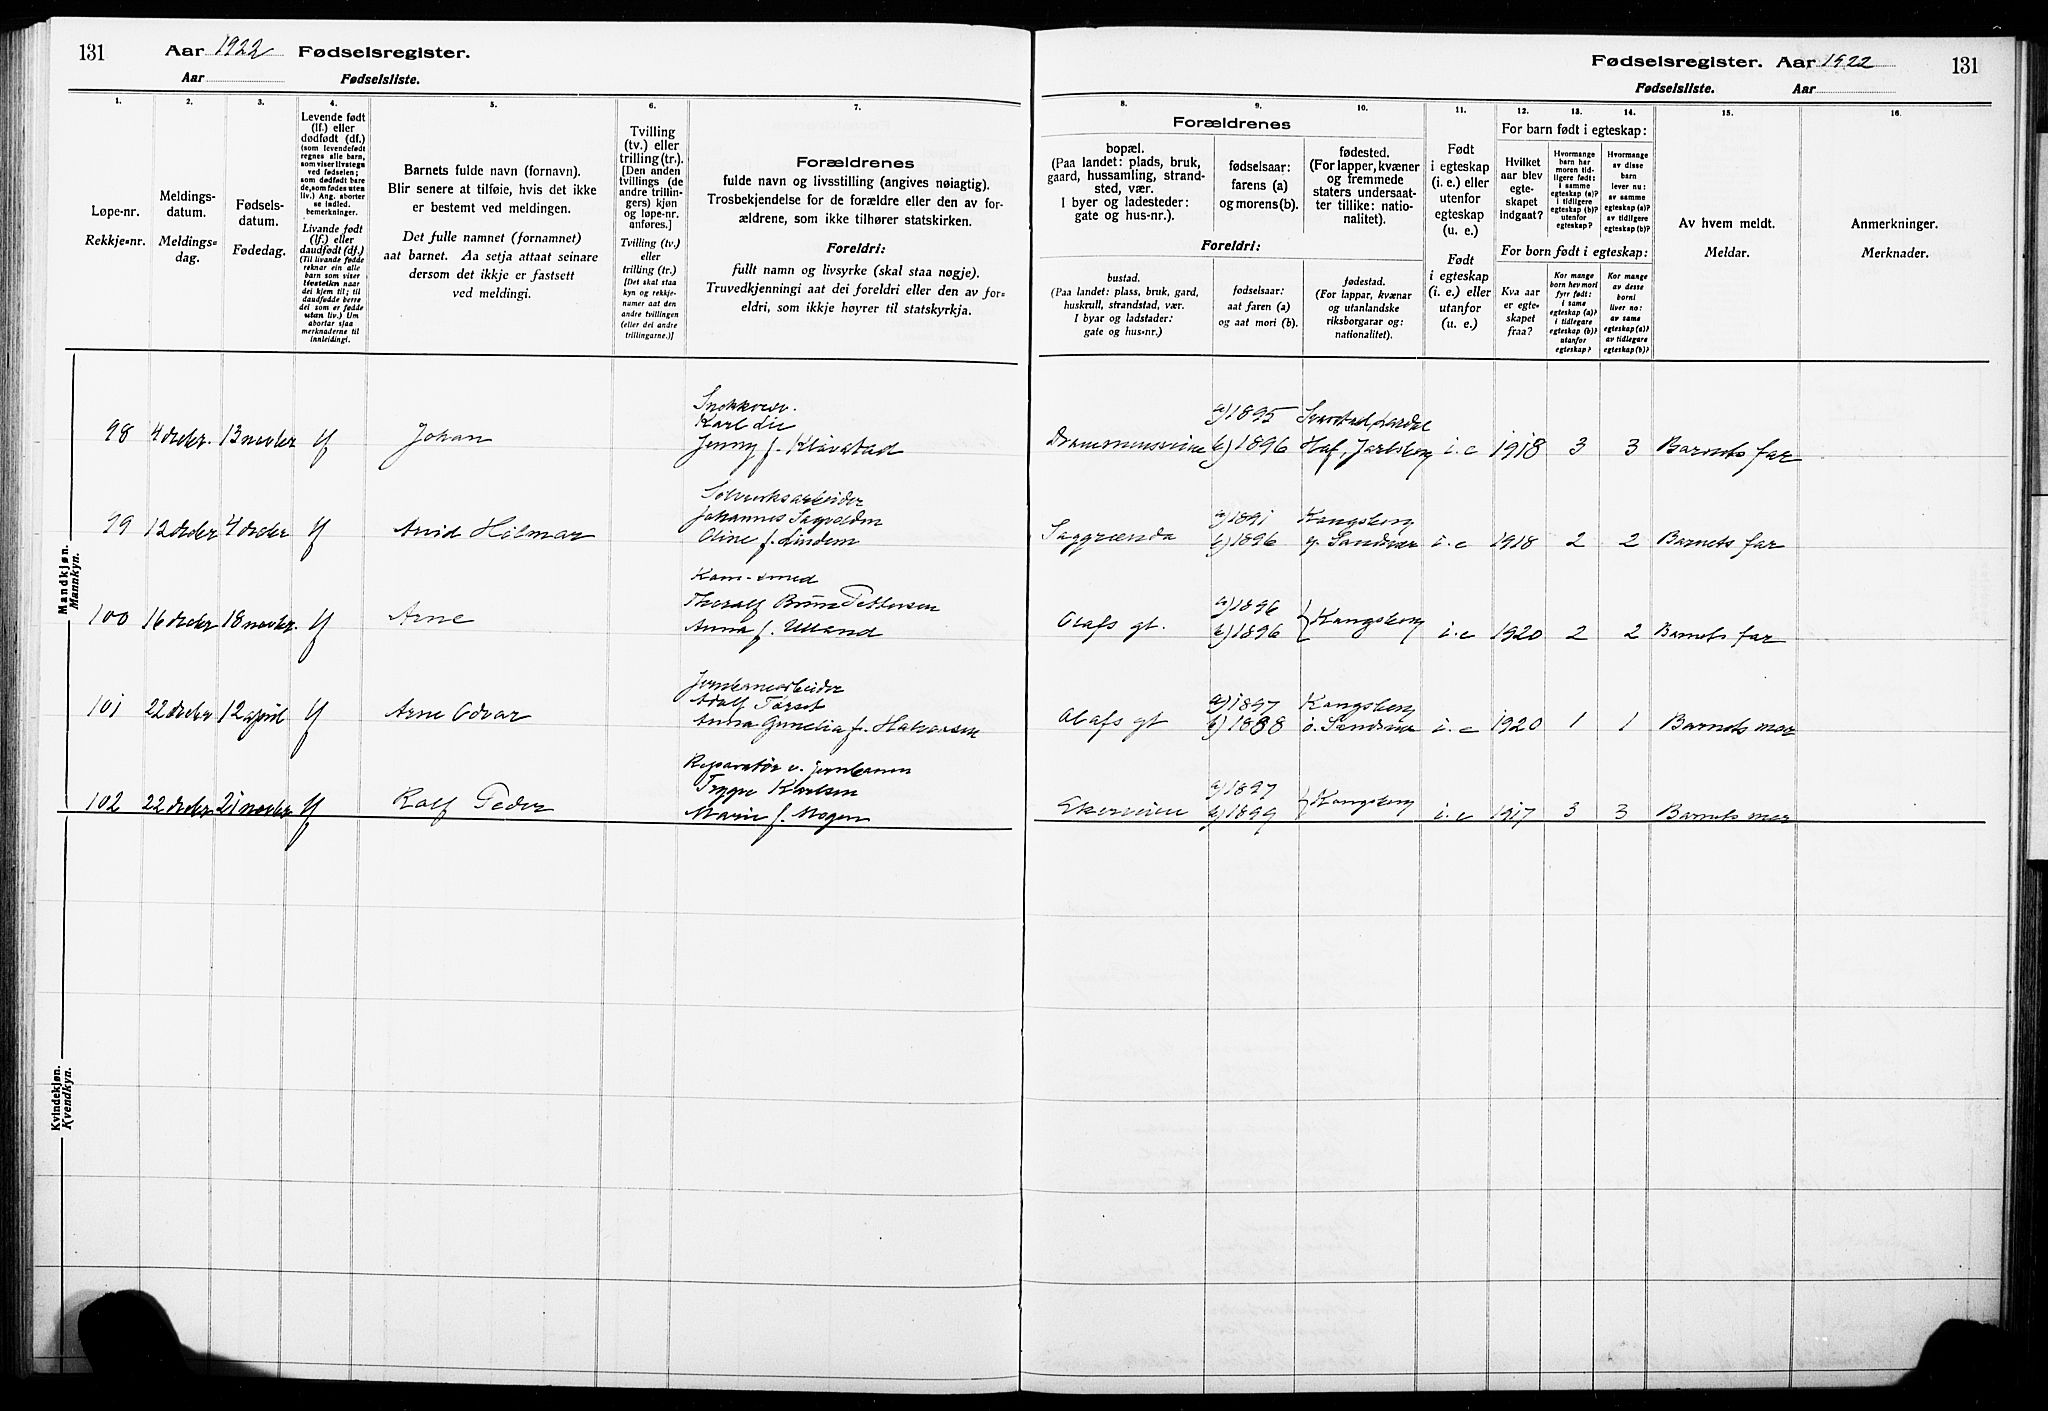 131 Aar 1922 Fødselsregister.
Aar Fødselsliste.
Fødselsregister. Aar 1922 131
Fødselsliste. Aar
1. 2. 3. 4. 5. 6. 7. 8. 9. 10. 11. 12. 13. 14. 15. 16.
Løpe-nr.
Rekkje-nr.
Meldings-
datum.
Meldings-
dag.
Fødsels-
datum.
Fødedag.
Levende født
(lf.) eller
dødfødt (df.)
(som levendefødt
regnes alle barn,
som viser livstegn
ved fødselen;
som dødfødt bare
de, som fødes uten
liv.) Ang. aborter
se indled.
bemerkninger.
Livande født
(lf.) eller
daudfødt (df.)
(Til livande fødde
reknar ein alle
barn som viser
livsteikn naar
dei kjem til; til
daudfødde berre
dei som er fødde
utan liv.) Um
abortar sjaa
merknaderne til
innleidingi.
Barnets fulde navn (fornavn).
Blir senere at tilføie, hvis det ikke
er bestemt ved meldingen.
Det fulle namnet (fornamnet)
aat barnet. Aa setja attaat seinare
dersom det ikkje er fastsett
ved meldingi.
Tvilling
(tv.) eller
trilling (tr.).
[Den anden
tvillings (de
andre trillin-
gers) kjøn
og løpe-nr.
anføres.]
Tvilling (tv.)
eller
trilling (tr.)
[Det skal staa
kyn og rekkje-
numer aat den
andre tvillingen
(eller dei andre
trillingarne.)]
Forældrenes
fulde navn og livsstilling (angives nøiagtig).
Trosbekjendelse for de forældre eller den av for-
ældrene, som ikke tilhører statskirken.
Foreldri:
fullt namn og livsyrke (skal staa nøgje).
Truvedkjenningi aat dei foreldri eller den av for-
eldri, som ikkje høyrer til statskyrkja.
Forældrenes
bopæl.
(Paa landet: plads, bruk,
gaard, hussamling, strand-
sted, vær.
I byer og ladesteder:
gate og hus-nr.).
fødselsaar:
farens (a)
og morens (b).
fødested.
(For lapper, kvæner
og fremmede
staters undersaat-
ter tillike: natio-
nalitet).
Foreldri:
bustad.
(Paa landet: plass, bruk, gard,
huskrull, strandstad, vær.
I byar og ladstader:
gate og hus-nr.)
fødselsaar:
aat faren (a)
og aat mori (b).
fødestad.
(For lappar, kvænar
og utanlandske
riksborgarar og:
nationalitet).
Født
i egteskap
(i. e.) eller
utenfor
egteskap
(u. e.)
Født
i egteskap
(i. e.) eller
utanfor
(u. e.)
For barn født i egteskap:
Hvilket
aar blev
egte-
skapet
indgaat?
Hvormange
barn har
moren tid-
ligere født:
i samme
egteskap (a)?
i tidligere
egteskap (b)?
utenfor
egteskap?
Hvormange
av disse
barn
lever nu:
av samme
egteskap (a)?
av tidligere
egteskap (b)?
For born født i egteskap:
Kva aar
er egte-
skapet
fraa?
Kor mange
born hev mori
fyrr født:
i same
egteskap (a)?
i tidlegare
egteskap (b)?
utanfor
egteskap?
Kor mange
av desse
borni
liver no:
av same
egteskap (a)?
av tidlegare
egteskap (b)?
Av hvem meldt.
Meldar.
Anmerkninger.
Merknader.
Mandkjøn.
Mannkyn.
98 4 decbr. 13 novbr lf Johan
Snekkersv.
Karl Lie
Jenny f. Klavstad
Drammensveien a) 1895 b) 1896
Hof, Jarlsberg i. e 1918 3 3 Barnets far
99 12 decbr 4 decbr lf Arvid Hilmar
Sølverksarbeider
Johannes Sagvolden
Oline f. Lindem
Saggrænda a) 1891 Kongsberg
b) 1896 ø. Sandsvær i. e 1918 2 2 Barnets far
100 16 decbr 18 novbr. lf Arne
Thoralf Bruun Pettersen
Anna f. Ulland
Olafs gt. a) 1896 b) 1896 } Kongsberg i. e 1920 2 2 Barnets far
101 22 decbr 12 april lf Arne Odvar
Jernbanearbeider
Adolf Torset
Anna Gunelia f. Halvorsen
Olafs gt a) 1897 Kongsberg
b) 1888 ø. Sandsvær i. e 1920 1 1 Barnets mor
102 22 decbr 21 novbr lf Rolf Peder
Reparatør v. jernbanen
Trygve Karlsen
Marie f. Mogen
Ekerveien a) 1897 b) 1899 } Kongsberg i. e 1917 3 3 Barnets mor
Kvindekjøn.
Kvendkyn.